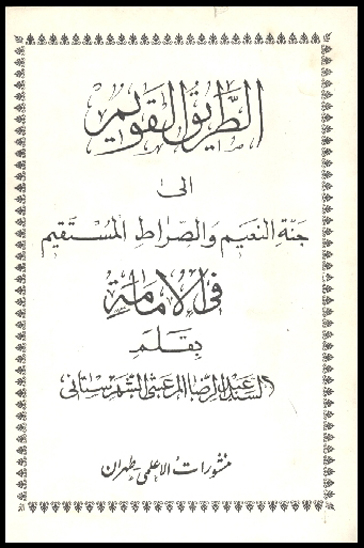 الطريق القويم
الى
جنة النعيم والصراط المستقيم
في الإمامة
بقلم
السيد عبد الرضا المرعشي الشهرستاني
منشورات الاعلمي - طهران